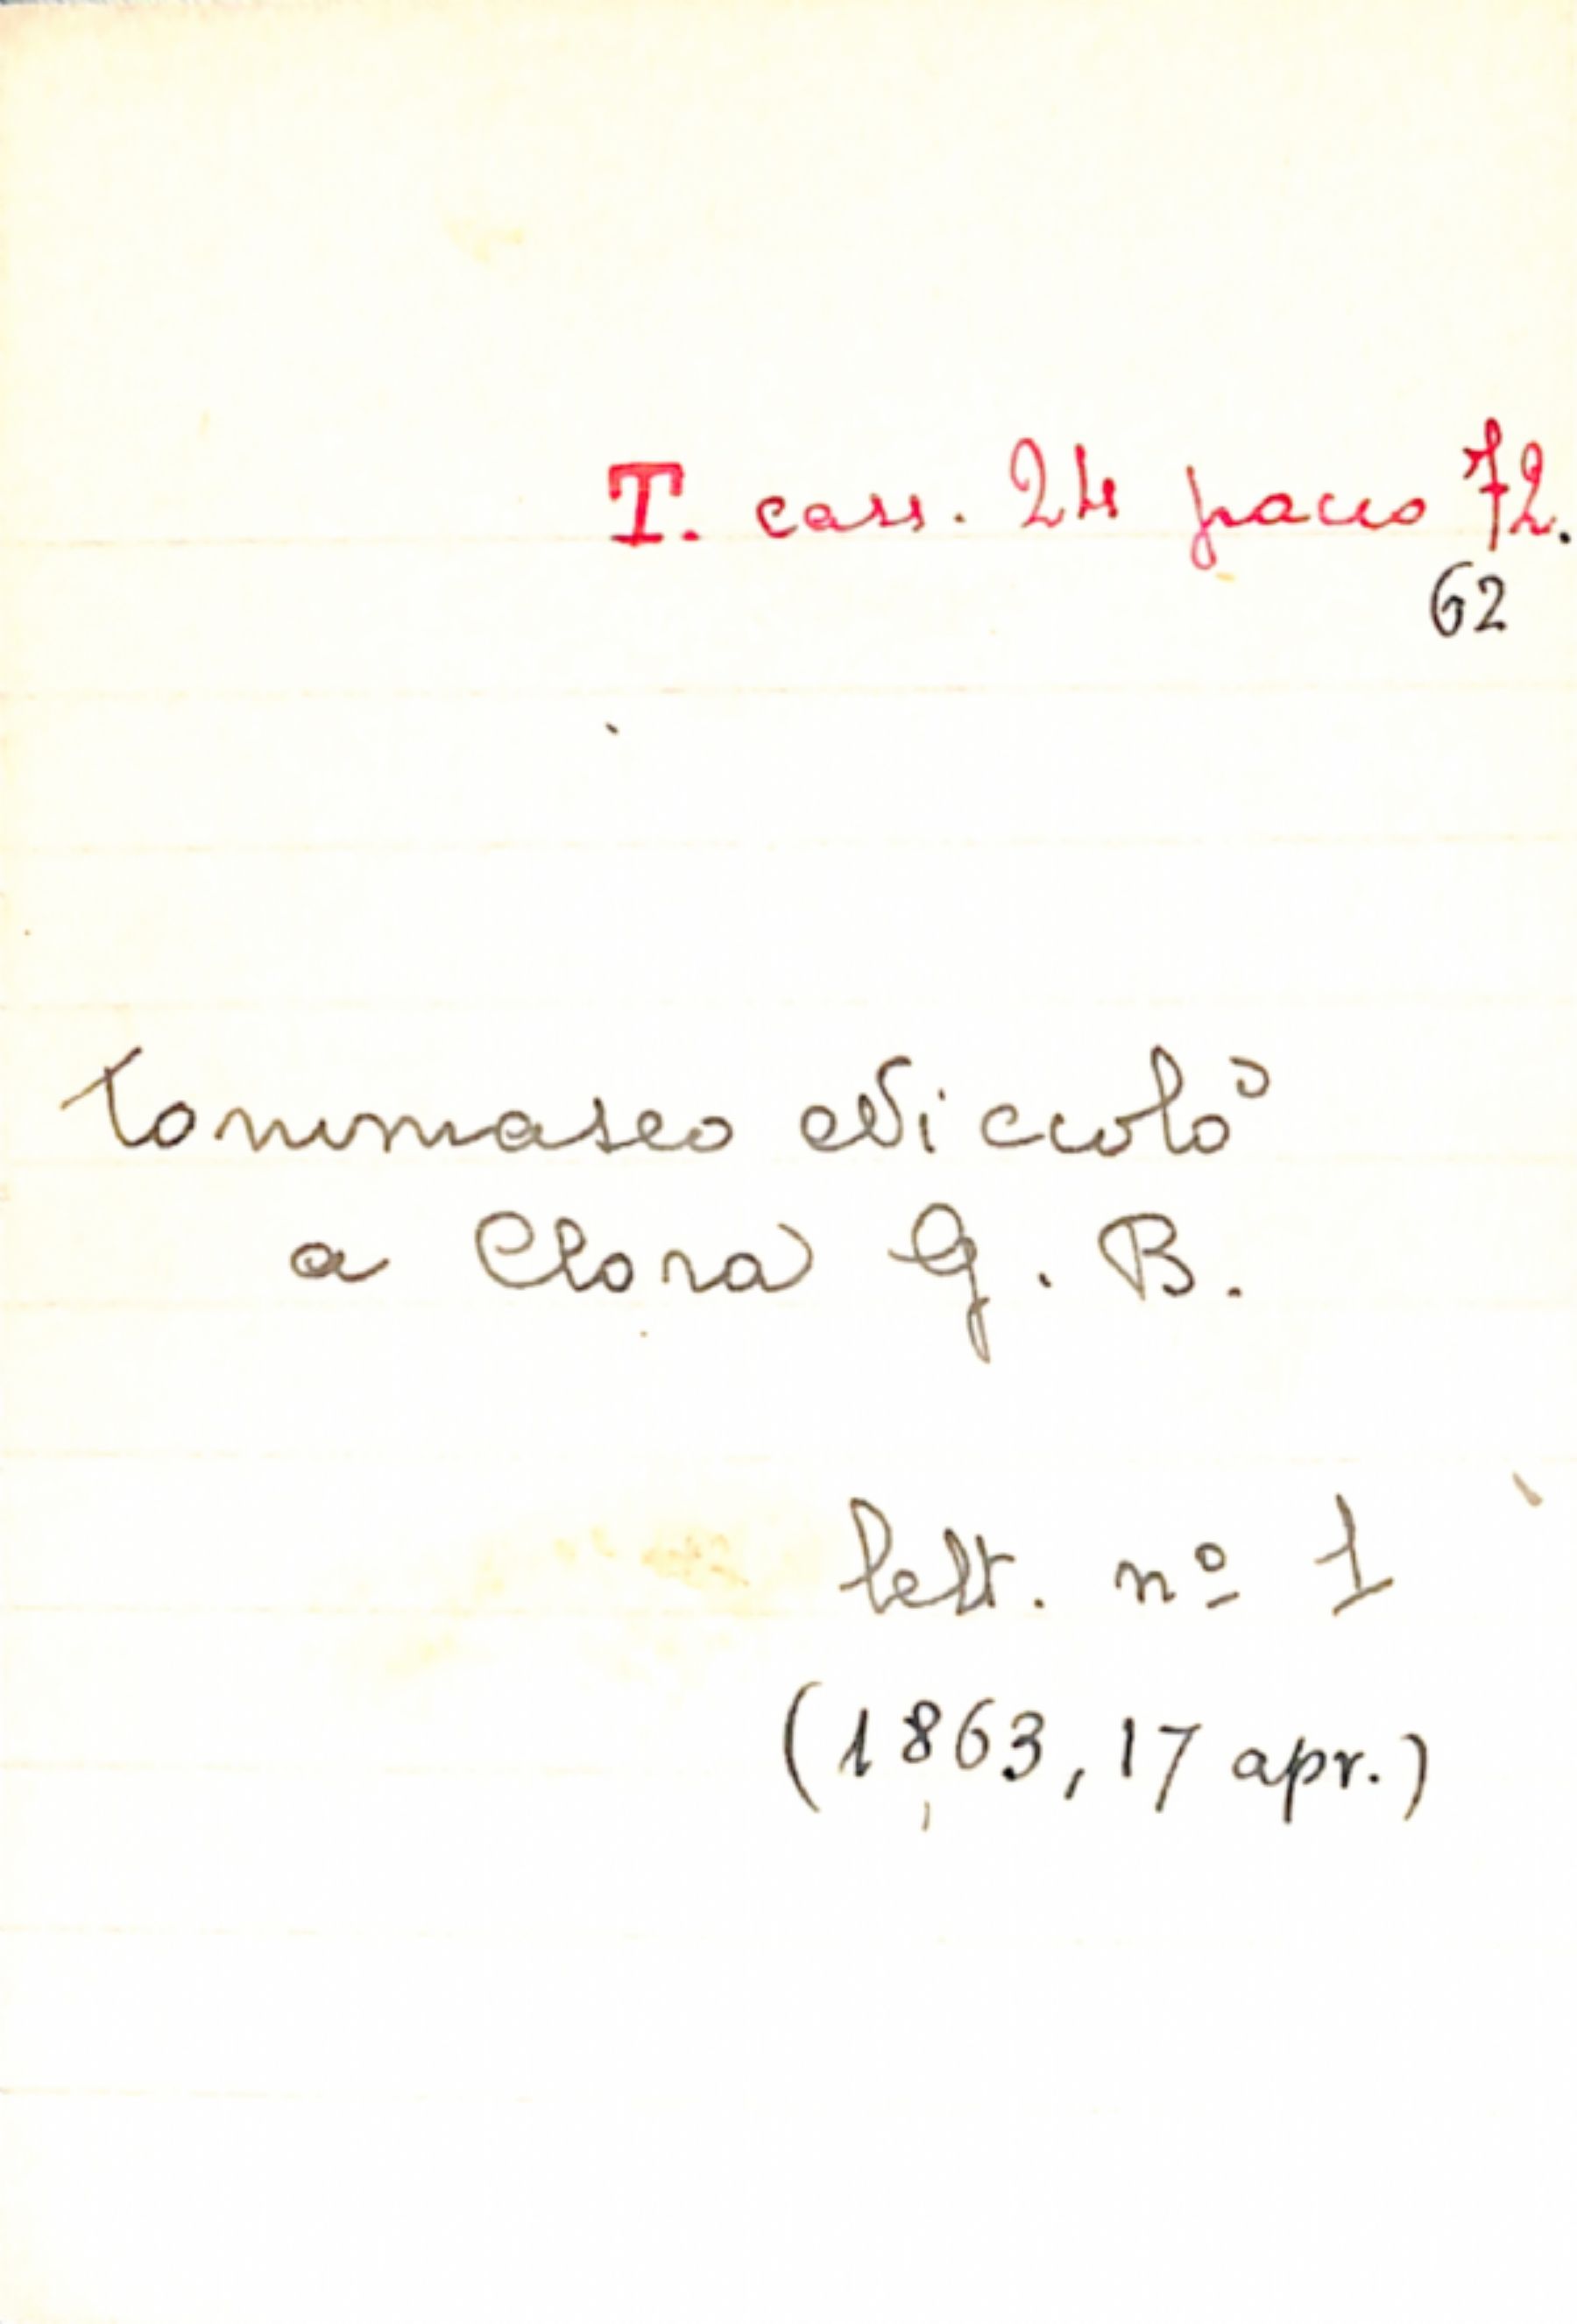 T. cass. 24 pacco 72.
62
Tommaseo Niccolò
a Clona G. B.
lett. nº 1
(1863, 17 apr.)